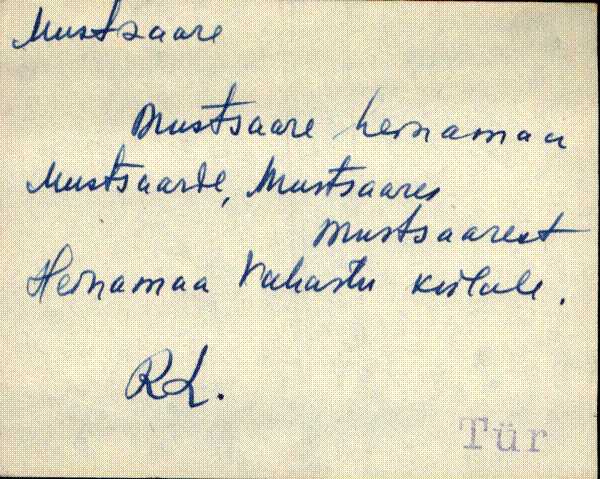 Mustsaare
Mustsaare heinamaa
Mustsaarde, Mustsaares
Mustsaarest
Heinamaa Vahastu külale.
R.L.
Tür